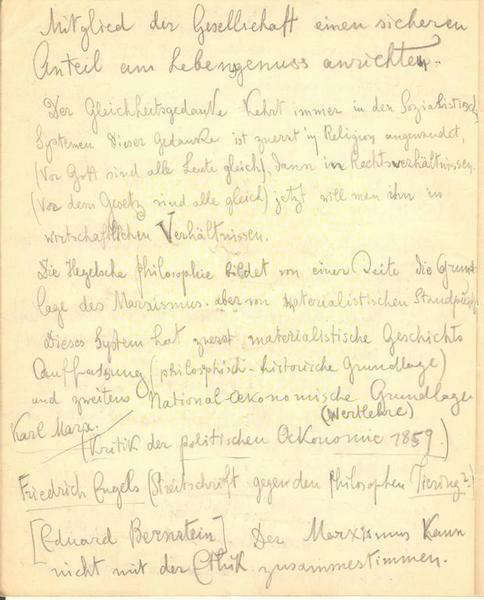 Mitglied der Gesellschaft einen sicheren
Anteil am Lebensgenuss anrichten.
Der Gleichheitsgedanke kehrt immer in den Sozialistisch
Systemen dieser Gedanke ist zuerst in Religion angewendet,
(Vor Gott sind alle Leute gleich), dann in Rechtsverhältnissen.
(Vor dem Gesetz sind alle gleich) jetzt will man ihn in
wirtschaftlichen Verhältnissen.
Die Hegelsche Philosophie bildet von einer Seite die Grund
lage des Marxismus. aber von materialistischen Standpunkt
Dieses System hat zuerst materialistische Geschichts
Auffassung (philosophisch-historische Grundlage)
und zweitens National-Oekonomische Grundlage
(Wertlehre)
Karl Marx.
(Kritik der politischen Oekonomie 1859.)
Friedrich Engels (Streitschrift gegen den Philosophen Tiering?)
[Eduard Bernstein]. Der Marxismus kann
nicht mit der Ethik zusammestimmen.